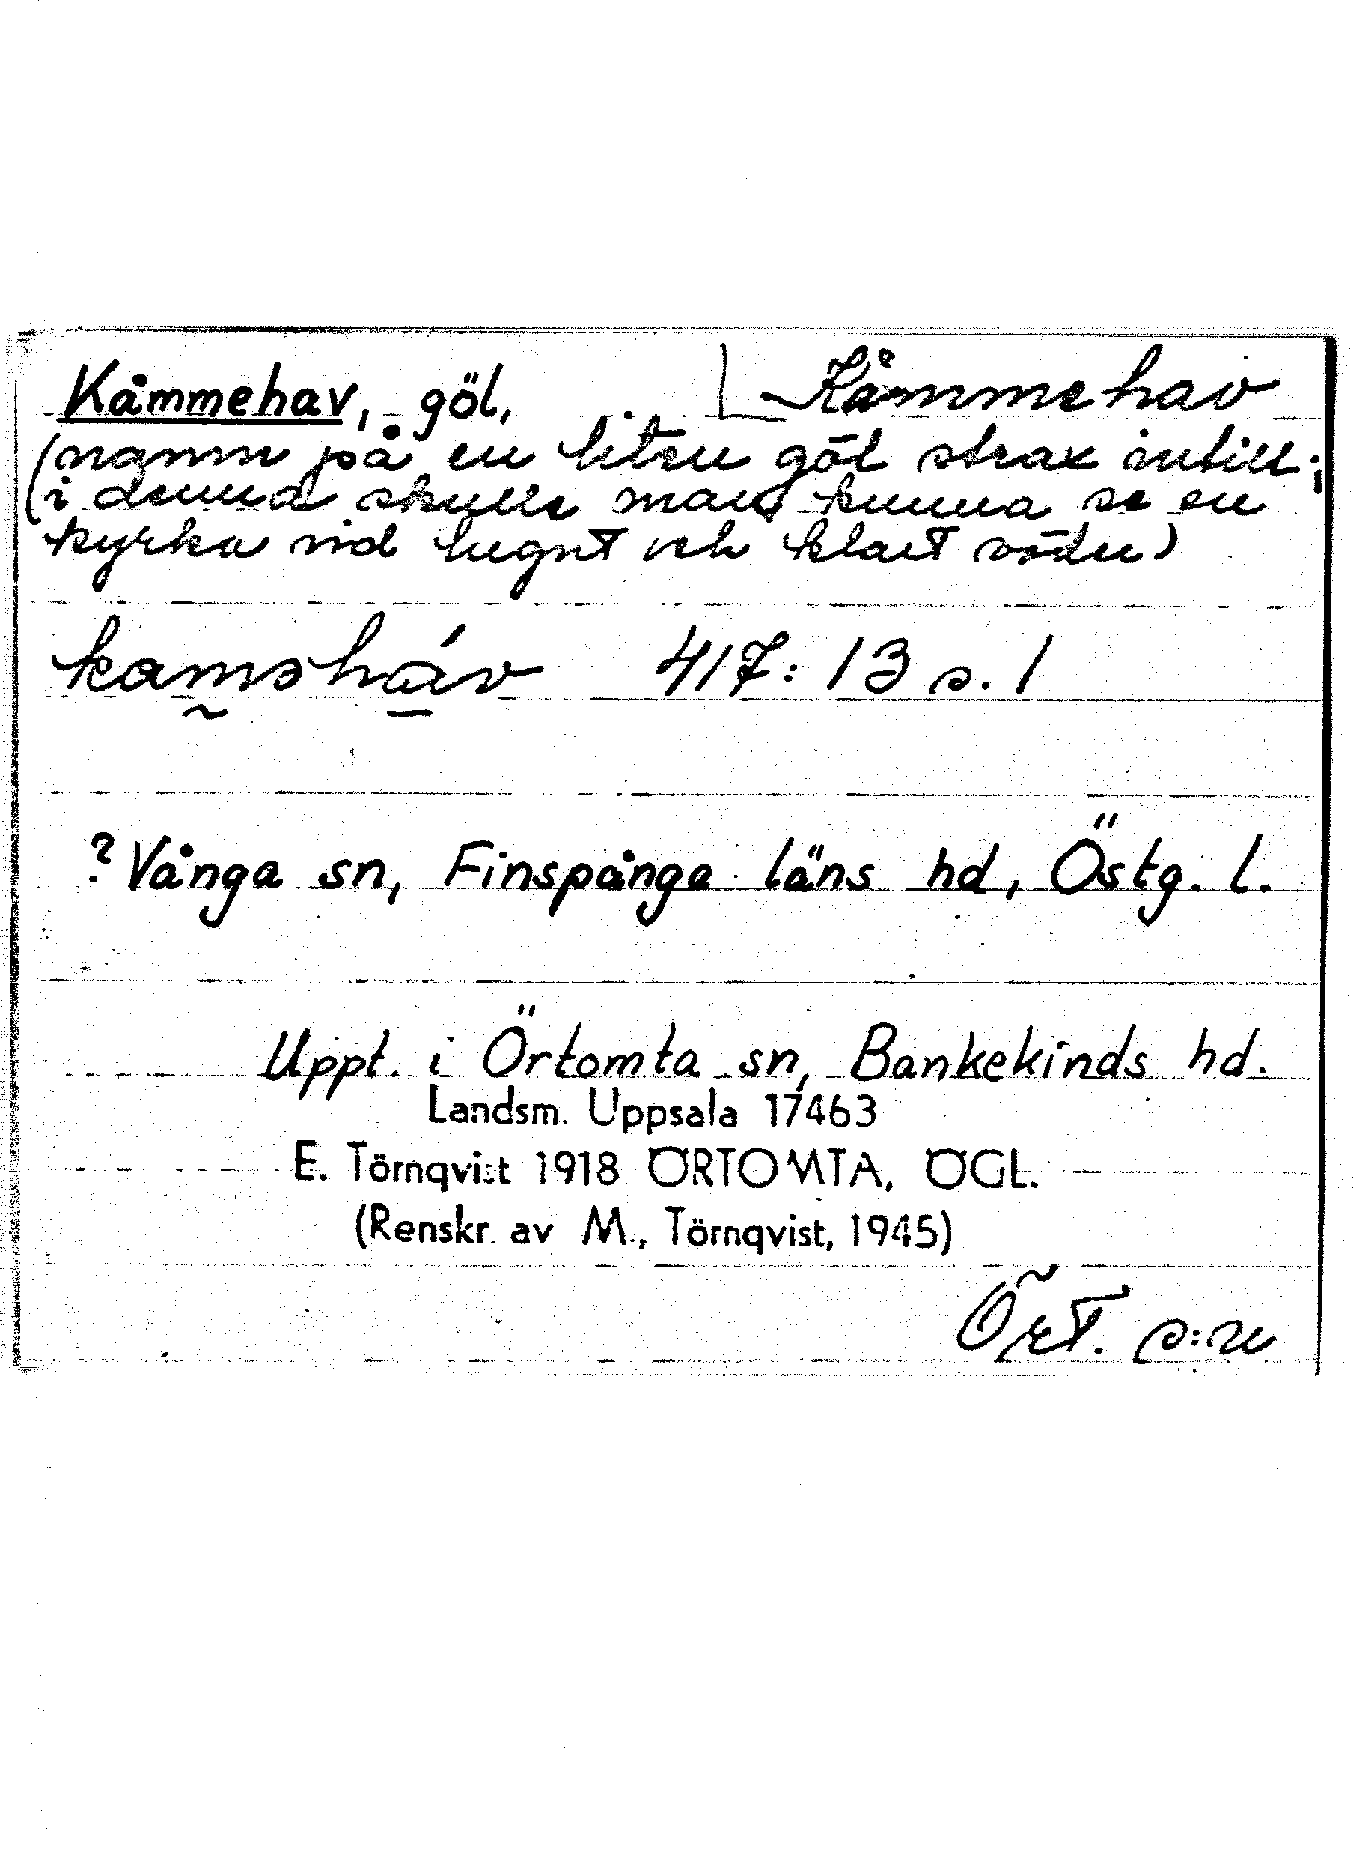 Kåmmehav, göl, Kåmmehav
(namn på en liten göl strax intill;
i denna skulle man kunna se en
kyrka vid lugnt och klart väder)
kam̰əhá̱v 417: 13 s. 1
? Vånga sn, Finspånga läns hd, Östg. l.
Uppt. i Örtomta sn, Bankekinds hd.
Landsm. Uppsala 17463
E. Törnqvist 1918 ÖRTOMTA, ÖGL.
(Renskr. av M., Törnqvist, 1945)
Ört. s:n